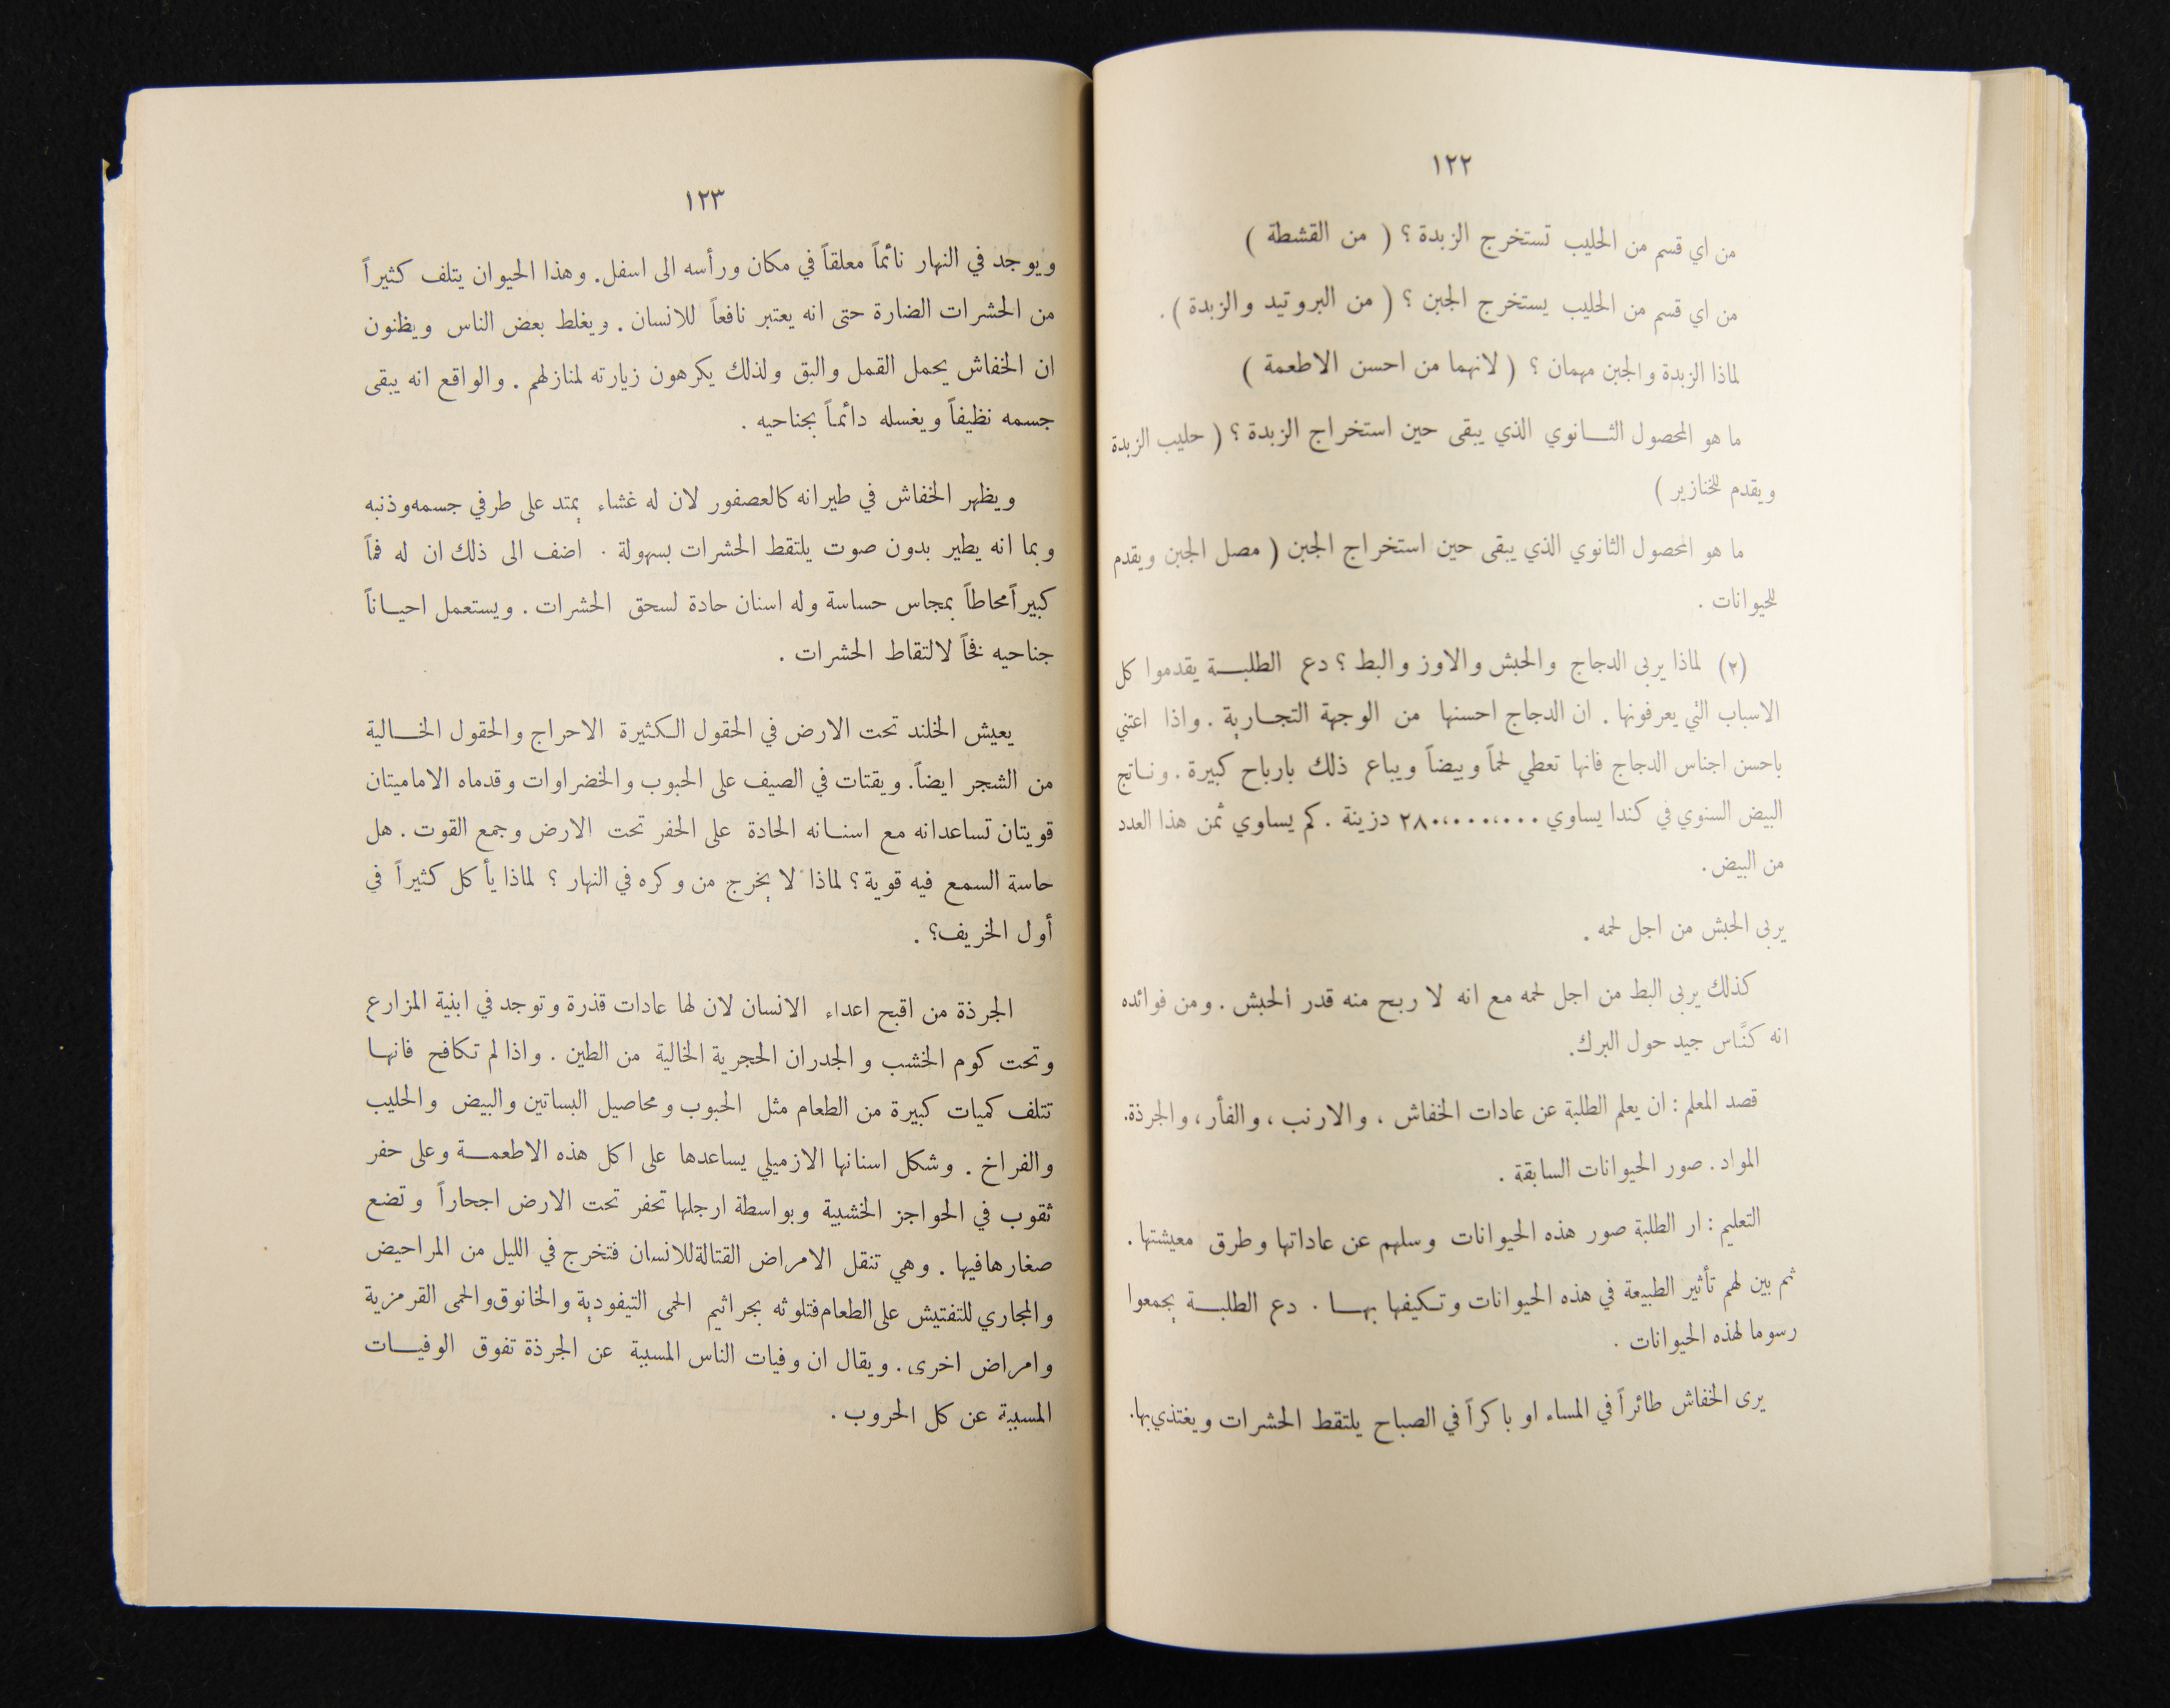 ١٢٢
من اي قسم من الحليب تستخرج الزبدة ؟ ( من القشطة )
من اي قسم من الحليب يستخرج الجبن ؟ ( من البروتيد والزبدة ) .
لماذا الزبدة والجبن مهمان ؟ ( لانهما من احسن الاطعمة )
ما هو المحصول الثـانوي الذي يبقى حين استخراج الزبدة ؟ ( حليب الزبدة
ويقدم للخنازير )
ما هو المحصول الثانوي الذي يبقى حين استخراج الجبن ( مصل الجبن ويقدم
للحيوانات .
(٢) لماذا يربى الدجاج والحبش والاوز والبط ؟ دع الطلبـة يقدموا كل
الاسباب التي يعرفونها . ان الدجاج احسنها من الوجهة التجـارية . واذا اعتني
باحسن اجناس الدجاج فانها تعطي لحماً وبيضاً ويباع ذلك بارباح كبيرة . ونـاتج
البيض السنوي في كندا يساوي ٢٨٠،٠٠٠،٠٠٠ دزينة . كم يساوي ثمن هذا العدد
من البيض .
يربى الحبش من اجل لحمه .
كذلك يربى البط من اجل لحمه مع انه لا ربح منه قدر الحبش . ومن فوائده
انه كنَّاس جيد حول البرك.
قصد المعلم : ان يعلم الطلبة عن عادات الخفاش ، والارنب ، والفأر ، والجرذة.
المواد . صور الحيوانات السابقة .
التعليم : ار الطلبة صور هذه الحيوانات وسلهم عن عاداتها وطرق معيشتها .
ثم بين لهم تأثير الطبيعة في هذه الحيوانات وتكيفها بهـا . دع الطلبـة يجمعوا
رسوما لهذه الحيوانات .
يرى الخفاش طائراً في المساء او باكراً في الصباح يلتقط الحشرات ويغتذي بها.
١٢٣
ويوجد في النهار نائماً معلقاً في مكان ورأسه الى اسفل. وهذا الحيوان يتلف كثيراً
من الحشرات الضارة حتى انه يعتبر نافعاً للانسان . ويغلط بعض الناس ويظنون
ان الخفاش يحمل القمل والبق ولذلك يكرهون زيارته لمنازلهم . والواقع انه يبقى
جسمه نظيفاً ويغسله دائماً بجناحيه .
ويظهر الخفاش في طيرانه كالعصفور لان له غشاء يمتد على طرفي جسمه وذنبه
وبما انه يطير بدون صوت يلتقط الحشرات بسهولة . اضف الى ذلك ان له فماً
كبيراً محاطاً بمجاس حساسة وله اسنان حادة لسحق الحشرات . ويستعمل احيـاناً
جناحيه فخاً لالتقاط الحشرات .
يعيش الخلند تحت الارض في الحقول الكثيرة الاحراج والحقول الخـالية
من الشجر ايضاً. ويقتات في الصيف على الحبوب والخضراوات وقدماه الاماميتان
قويتان تساعدانه مع اسنـانه الحادة على الحفر تحت الارض وجمع القوت . هل
حاسة السمع فيه قوية ؟ لماذا لا يخرج من وكره في النهار ؟ لماذا يأكل كثيراً في
أول الخريف؟ .
الجرذة من اقبح اعداء الانسان لان لها عادات قذرة وتوجد في ابنية المزارع
وتحت كوم الخشب والجدران الحجرية الخالية من الطين . واذا لم تكافح فانهـا
تتلف كميات كبيرة من الطعام مثل الحبوب ومحاصيل البساتين والبيض والحليب
والفراخ . وشكل اسنانها الازميلي يساعدها على اكل هذه الاطعمـة وعلى حفر
ثقوب في الحواجز الخشبية وبواسطة ارجلها تحفر تحت الارض اجحاراً وتضع
صغارها فيها . وهي تنقل الامراض القتالة للانسان فتخرج في الليل من المراحيض
والمجاري للتفتيش على الطعام فتلوثه بجراثيم الحمى التيفودية والخانوق والحمى القرمزية
وامراض اخرى . ويقال ان وفيات الناس المسببة عن الجرذة تفوق الوفيـات
المسببة عن كل الحروب .